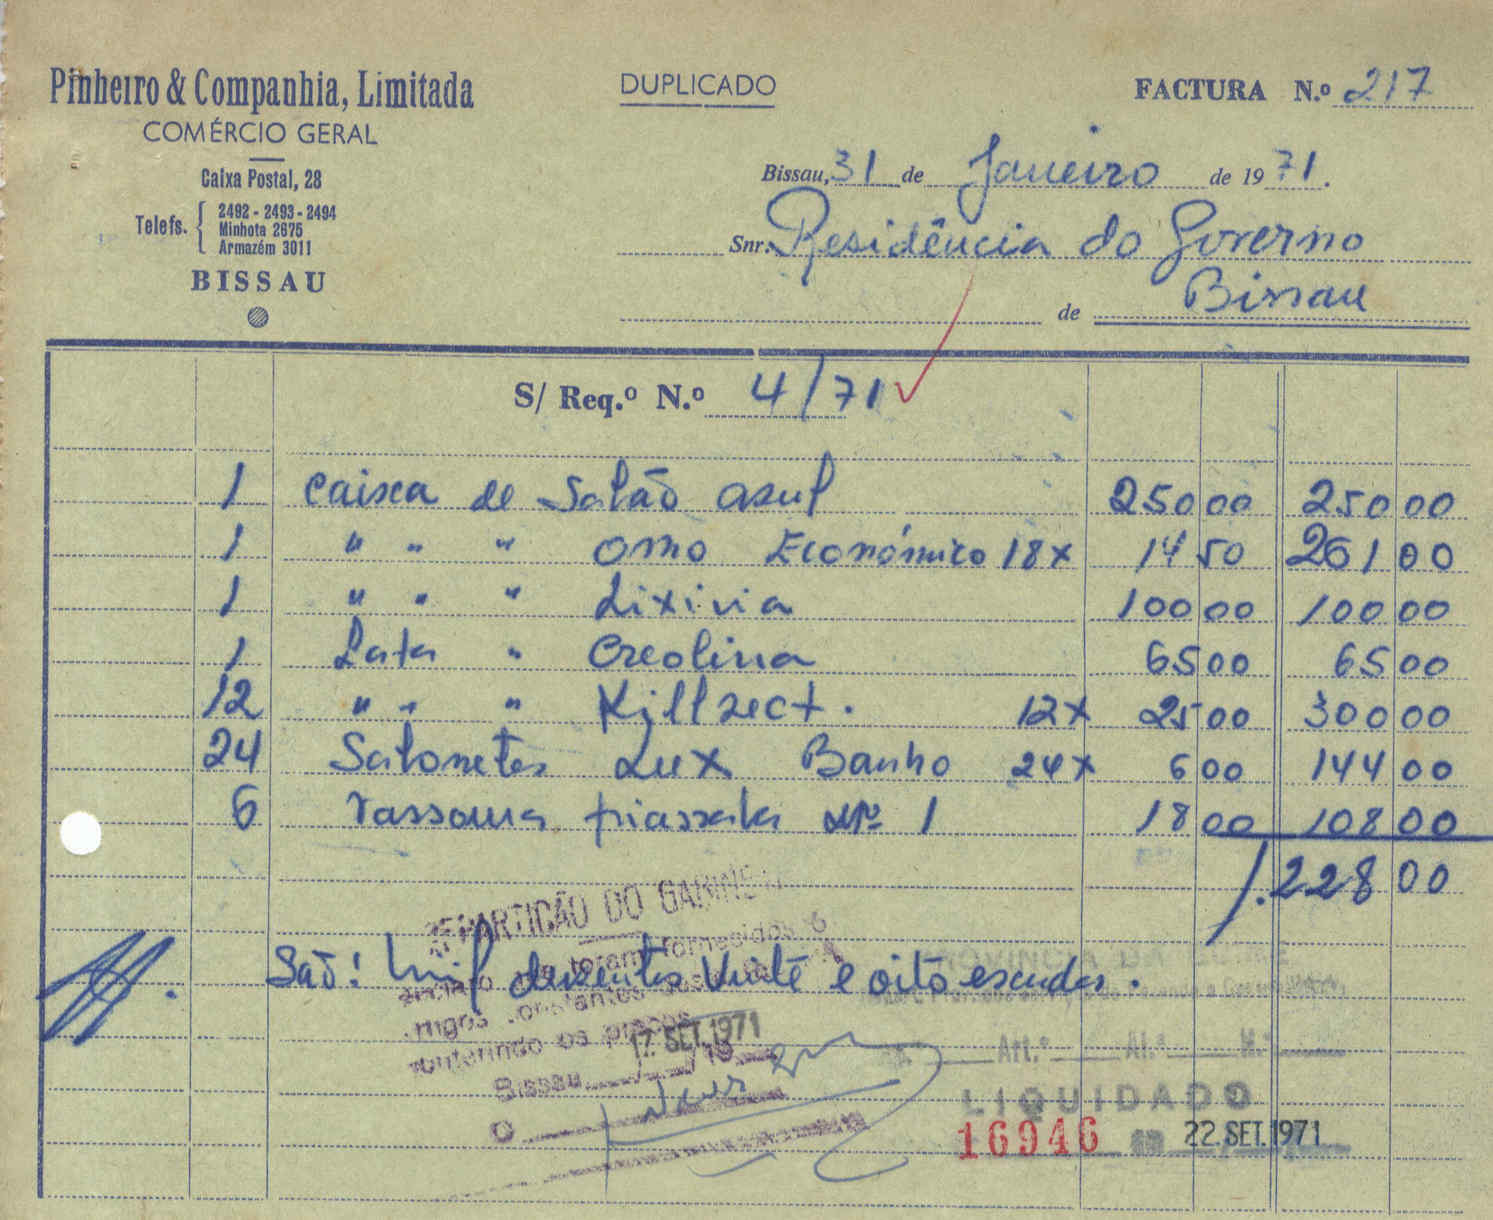 Pinheiro & Companhia, Limitada
COMÉRCIO GERAL
Caixa Postal, 28
Telefs. 2492 - 2493 - 2494
Minhota 2675
Armazém 3011
BISSAU
DUPLICADO
FACTURA N.º 217
Bissau, 31 de Janeiro de 1971.
Snr. Residência do Governo
de Bissau
S/ Req.º N.º 4/71
1 Caixa de Sabão azul 250 00 250 00
1 " " " omo Económico 18x 14 50 261 00
1 " " " Lixivia 100 00 100 00
1 Lata " Creolina 65 00 65 00
12 " " " Killsect. 12x 25 00 300 00
24 Sabonetes Lux Banho 24x 6 00 144 00
6 Vassoura piassaba nº 1 18 00 108 00
1.228 00
REPARTIÇÃO DO GABINETE
São: mil duzentos Vinte e oito escudos.
foram fornecidos
artigos constantes
conferindo os preços
17. SET. 1971
Bissau / / 19
O
PROVINCIA DA GUINÉ
Art.º Al.ª N.º
LIQUIDADO
16946 em 22. SET. 1971